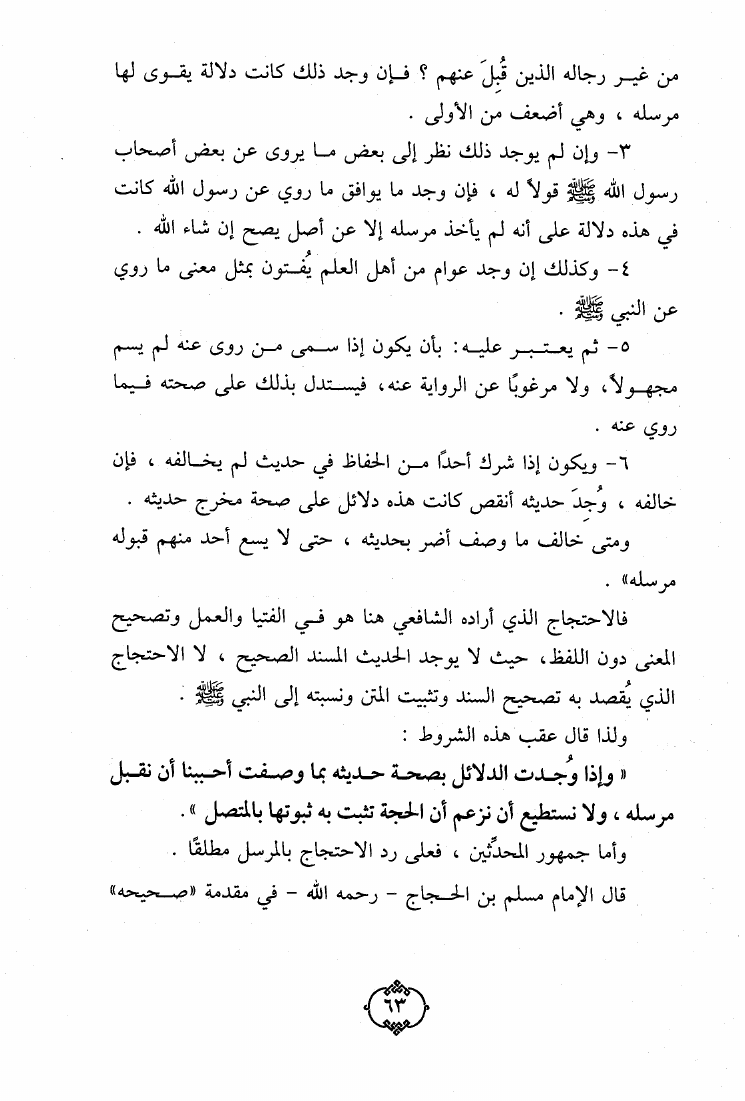 من غير رجاله الذين قُبِلَ عنهم ؟ فإن وجد ذلك كانت دلالة يقوى لها
مرسله ، وهي أضعف من الأولى .
٣- وإن لم يوجد ذلك نظر إلى بعض ما يروى عن بعض أصحاب
رسول الله ﷺ قولاً له ، فإن وجد ما يوافق ما روي عن رسول الله كانت
في هذه دلالة على أنه لم يأخذ مرسله إلا عن أصل يصح إن شاء الله .
٤- وكذلك إن وجد عوام من أهل العلم يُفتون بمثل معنى ما روي
عن النبي ﷺ .
٥- ثم يعتبر عليه: بأن يكون إذا سمى من روى عنه لم يسم
مجهولاً، ولا مرغوبًا عن الرواية عنه، فيستدل بذلك على صحته فيما
روي عنه .
٦- ويكون إذا شرك أحدًا من الحفاظ في حديث لم يخالفه ، فإن
خالفه ، وُجِدَ حديثه أنقص كانت هذه دلائل على صحة مخرج حديثه .
ومتى خالف ما وصف أضر بحديثه ، حتى لا يسع أحد منهم قبوله
مرسله» .
فالاحتجاج الذي أراده الشافعي هنا هو في الفتيا والعمل وتصحيح
المعنى دون اللفظ، حيث لا يوجد الحديث المسند الصحيح ، لا الاحتجاج
الذي يُقصد به تصحيح السند وتثبيت المتن ونسبته إلى النبي ﷺ .
ولذا قال عقب هذه الشروط :
« وإذا وُجدت الدلائل بصحة حديثه بما وصفت أحببنا أن نقبل
مرسله ، ولا نستطيع أن نزعم أن الحجة تثبت به ثبوتها بالمتصل » .
وأما جمهور المحدِّثين ، فعلى رد الاحتجاج بالمرسل مطلقًا .
قال الإمام مسلم بن الحجاج - رحمه الله - في مقدمة «صحيحه»
٦٣